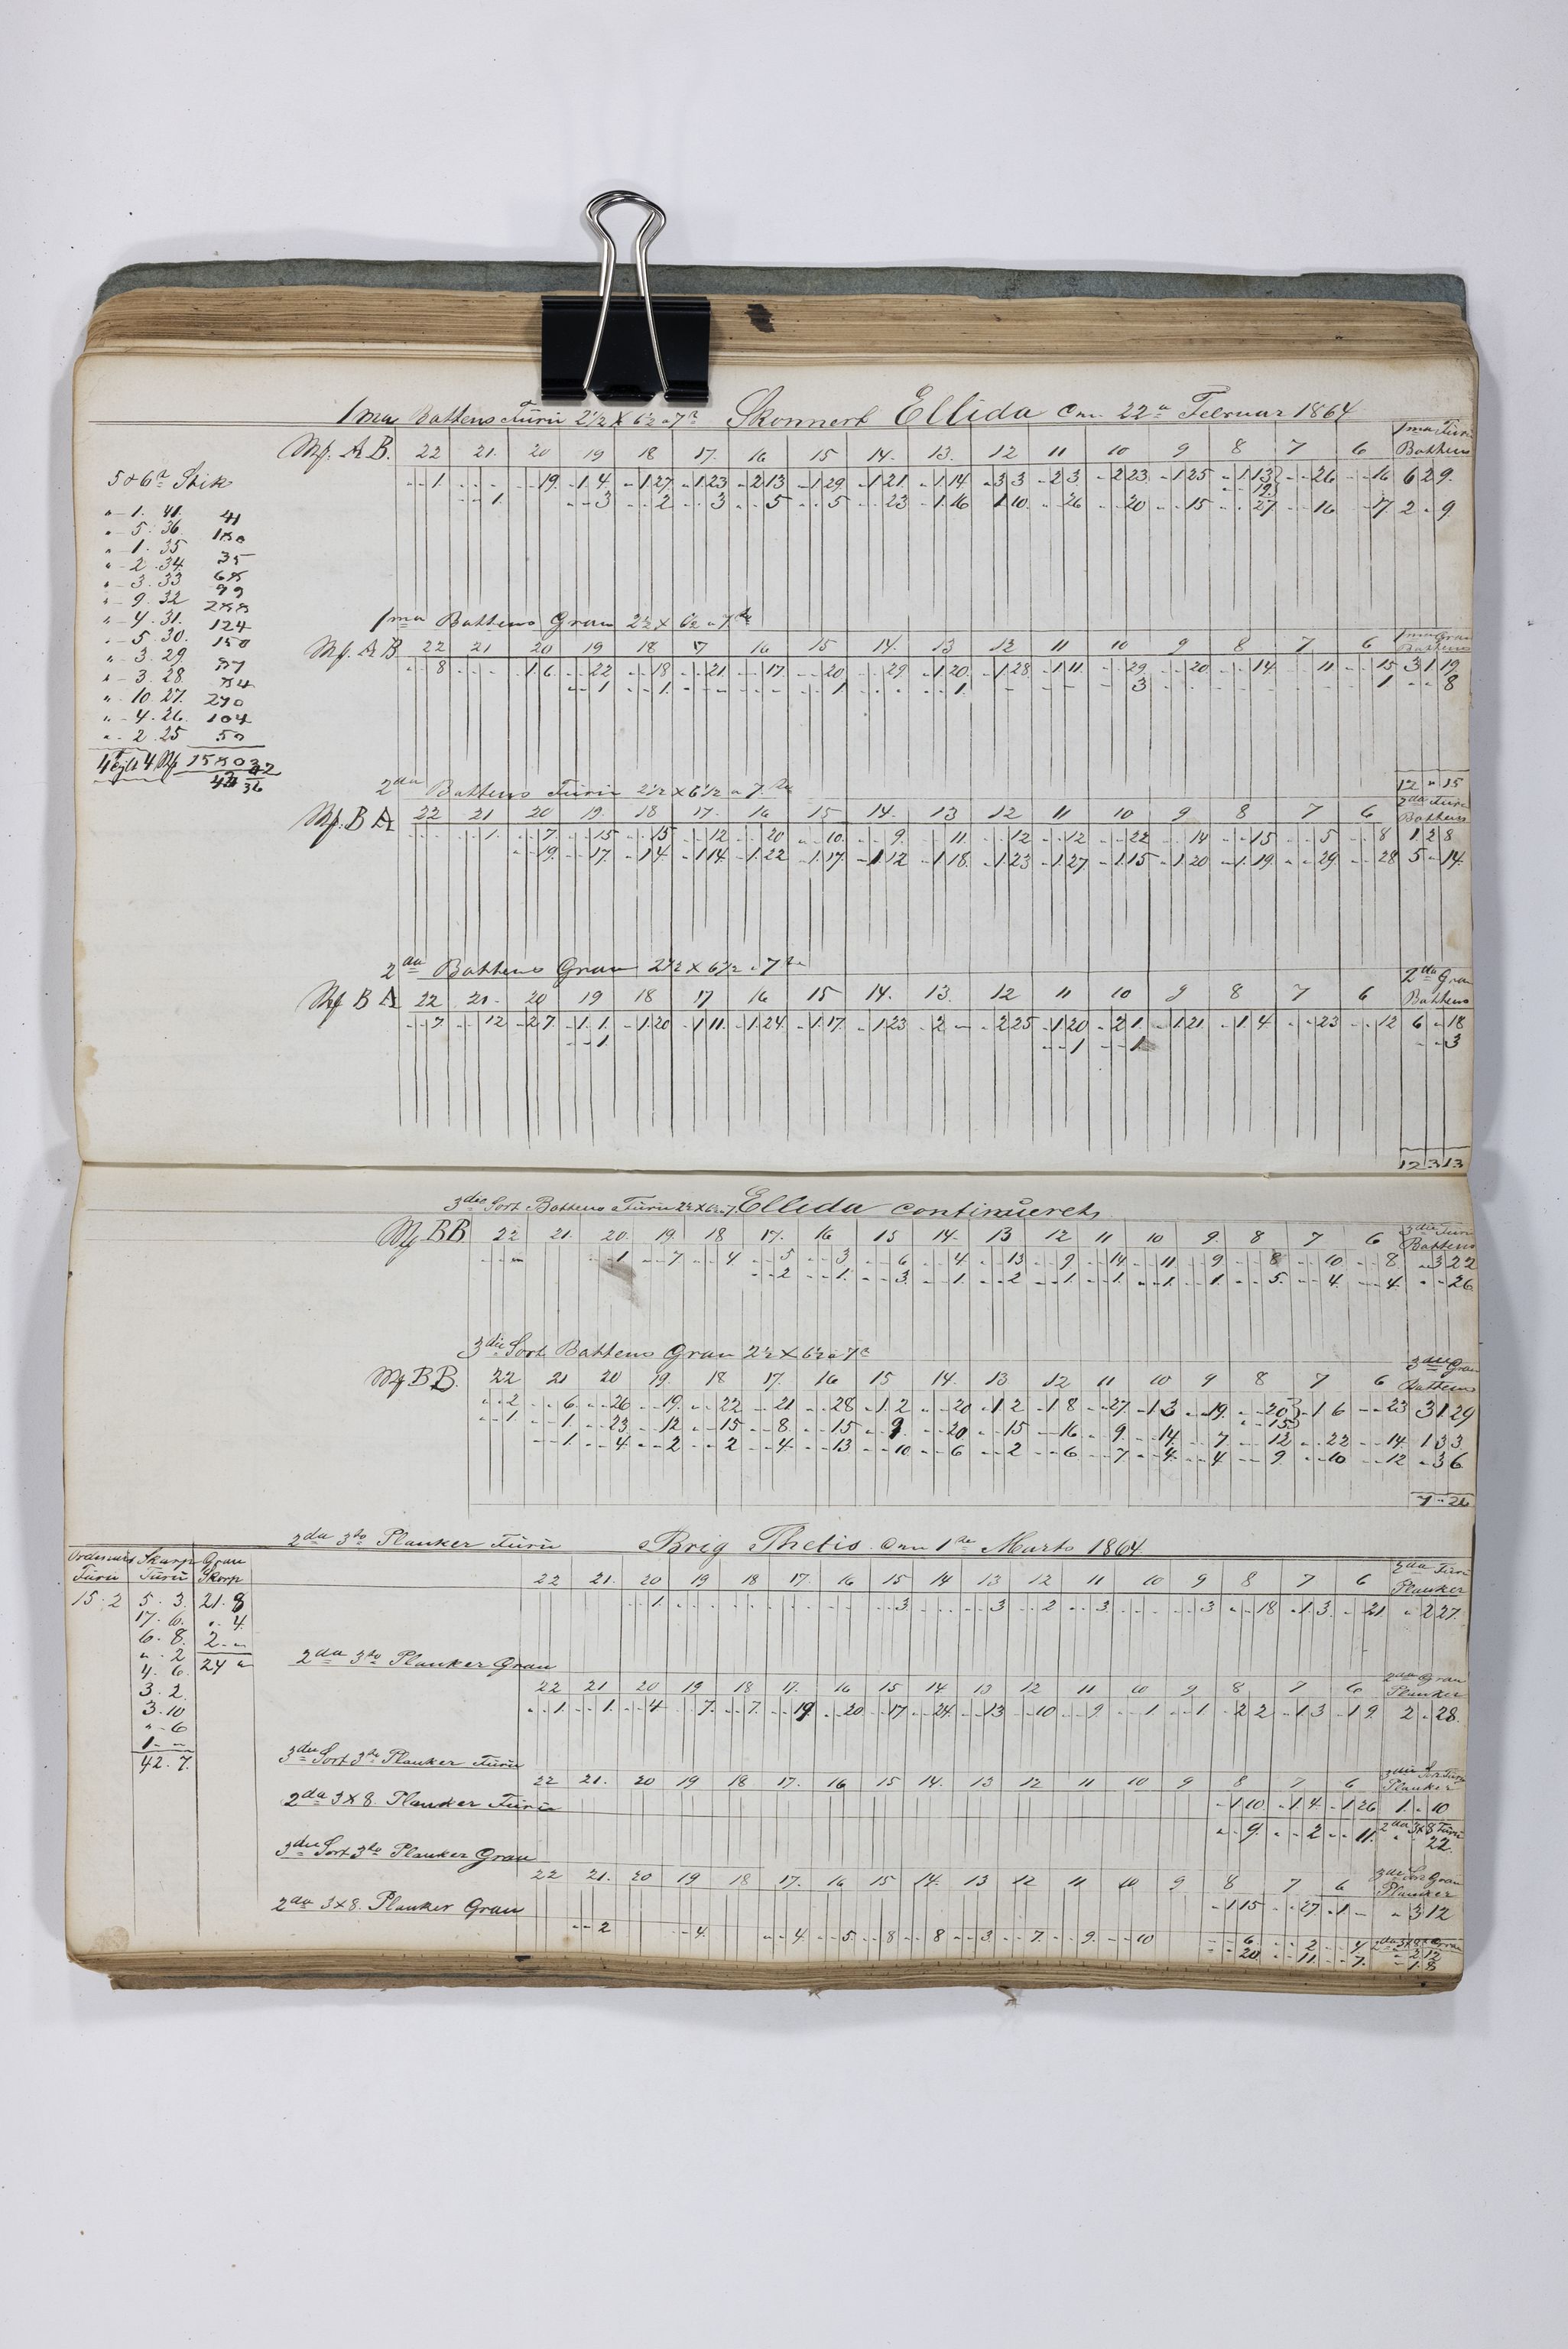 1ma Battens Furu 2½ X 6½ a 7 Skonnert Ellida Den 22 Februar 1864
Mf. A B. 22 21. 20 19 18 17. 16 15 14. 13. 12 11 10 9 8 7 6 1ma Furu Battens
1 19. 1 4. 1 27. 1 23 2 13 1 29 1 21 1 14. 3 3 2 3. 2 23. 1 25 1 13 26 16 6 2 9.
19
1. 3 2 3 5 5 23 1 16 1 10. 26 20 15 27 16 17. 2 " 9.
5 & 6 Stik
" 1. 41. 41
" 5. 36 180
" 1. 35 35
" 2. 34. 68
" 3. 33 99
" 9. 32 288
" 4. 31. 124
" 5. 30. 150
" 3. 29 87
" 3. 28. 84
" 10. 27. 270
" 4. 26. 104
" 2. 25 50
1ma Battens Gran 2½ X 6½ a 7
Mf. A B 22 21 20 19 18 17 16 15 14. 13 12 11 10 9 8 7 6 1ma Gran Battens
8 1 6. 22 18 21. 17 20 29 1 20. 1 28 1 11. 29. 20 14. 11 15 3 1 19
1 1. 1 1. 3 1 8
12 " 15
2da Battens Furu 2½ X 6½ a 7.
Mf. B A 22 21 20 19. 18 17. 16 15 14. 13 12 11 10 9 8 7 6 2da Furu Battens
1. 7. 15 15 12 20 10. 9. 11. 12 12 22 14 15 5 8 1 2 8
19. 17. 1 4. 1 14. 1 22 1 17. 1 12 1 18. 1 23 1 27. 1 15 1 20 1 19. 29. 28 5 " 14.
2da Battens Gran 2½ X 6½ a 7
Mf B A 22 21. 20 19 18 17 16 15 14. 13. 12 11 10 9 8 7 6 2da Gran Battens
7. 12 2 7. 1 1. 1 20 1 11. 1 24. 1 17. 1 23 2 2 25 1 20 2 1. 1 21 1 4 23 12 6 " 18
1. 1 1 3
12 3 13
3die Sort Battens Furu 2½ X 6½ a 7. Ellida continueret
Mf BB 22 21. 20. 19. 18 17. 16 15 14. 13 12 11 10 9. 8 7 6 3die Furu Battens
1 7 4 5 3 6 4 13 9 14 11 9 8 10 8 " 3 22
2 1. 3. 1. 2 1. 1. 1. 1. 5. 4. 4. " " 26
3die Sort Battens Gran 2½ X 6½ a 7
Mf BB. 22 21 20 19. 18 17. 16 15 14. 13 12 11 10 9 8 7 6 3die Gran Battens
2 6. 26 19. 22 21 28 1 2 20 1 2 1 8 27. 1 3 19. 20 1 6 23 3 1 29
15
1. 1. 23. 12 15 8. 15 9. 20 15 16. 9. 14. 7 12 22 14. 1 3 3
1. 4 2 2 4. 13 10 6 2 6 7 4. 4 9. 10 12 " 3 6
2da 3 Planker Furu Brig Thetis. Den 1 Marts 1864
Ordinair Furu Skarp Furu Gran Skarp
22 21. 20 19 18 17. 16 15 14 13 12 11 10 9 8 7 6 2da Furu Planker
1. 3. 3 2 3. 3 18 1 3. 21. " 2 27.
15. 2 5. 3. 21. 8
17. 6. ". 4.
6. 8. 2. "
". 2 24 "
4. 6.
3. 2.
3. 10
". 6
1. "
42. 7.
2da 3 Planker Gran
22 21 20 19 18 17. 16 15 14 13 12 11 10 9 8 7 6 2da Gran Planker
1. 1. 4 7. 7. 19. 20 17 24. 13 10 9. 1 1 2 2 1 3 1 9. 2 " 28.
3die Sort 3 Planker Furu
22 21. 20 19 18 17. 16 15 14. 13 12 11 10 9 8 7 6 3die Sort Furu Planker
1 10 1 4. 1 26 1. " 10
2da 3 X 8. Planker Furu
9. 2 11. 2da 3 X 8 Furu 22.
3die Sort 3 Planker Gran
22 21. 20 19 18 17. 16 15 14. 13 12 11 10 9 8 7 6 3die Sort Gran Planker
1 15 27 1 " 3 12
2da 3 X 8. Planker Gran
2 4. 4. 5. 8 8 3. 7. 9. 10 6 2 4
20. 11. 7.